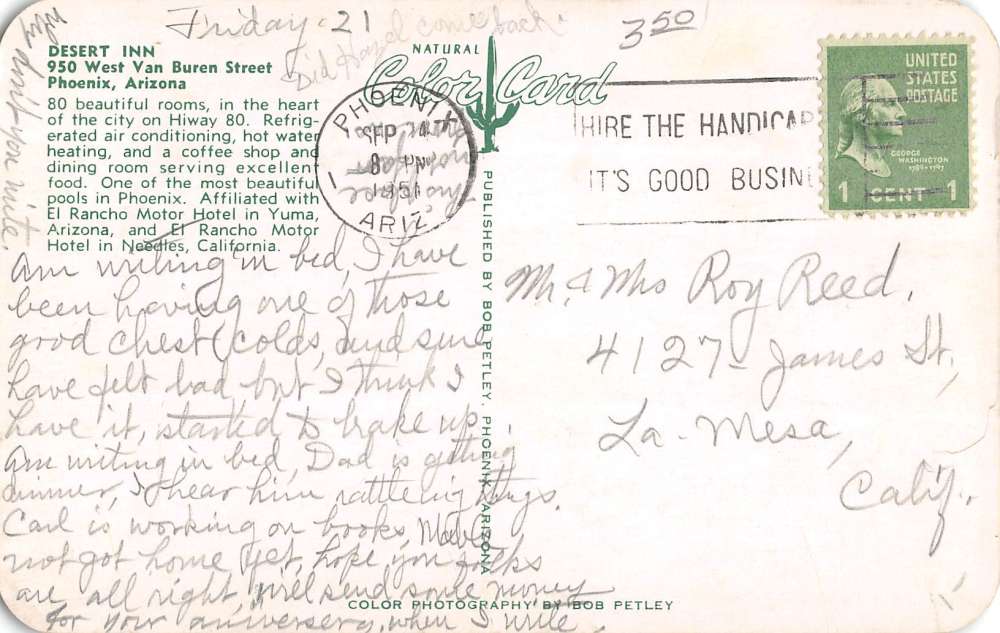 Friday - 21
Did Hazel come back.
3 50
Why dont you write.
DESERT INN
950 West Van Buren Street
Phoenix, Arizona
80 beautiful rooms, in the heart
of the city on Hiway 80. Refrig-
erated air conditioning, hot water
heating, and a coffee shop and
dining room serving excellent
food. One of the most beautiful
pools in Phoenix. Affiliated with
El Rancho Motor Hotel in Yuma,
Arizona, and El Rancho Motor
Hotel in Needles, California.
NATURAL
Color Card
PHOENIX
SEP
8 PM
1951
ARIZ.
HIRE THE HANDICAP
IT'S GOOD BUSIN
UNITED
STATES
POSTAGE
GEORGE
WASHINGTON
1789-1797
1 CENT 1
PUBLISHED BY BOB PETLEY, PHOENIX, ARIZONA
am writing in bed, I have
been having one of those
good chest colds, and sure
have felt bad, but I think I
have it, started to brake up,
am writing in bed, Dad is getting
dinner, I hear him rattleing things.
Carl is working on books, Mable
not got home yet, hope you folks
are all right, will send some money
for your aniversery, when I write.
Mr. & Mrs Roy Reed,
4127 - James St,
La - Mesa,
Calif.
COLOR PHOTOGRAPHY BY BOB PETLEY